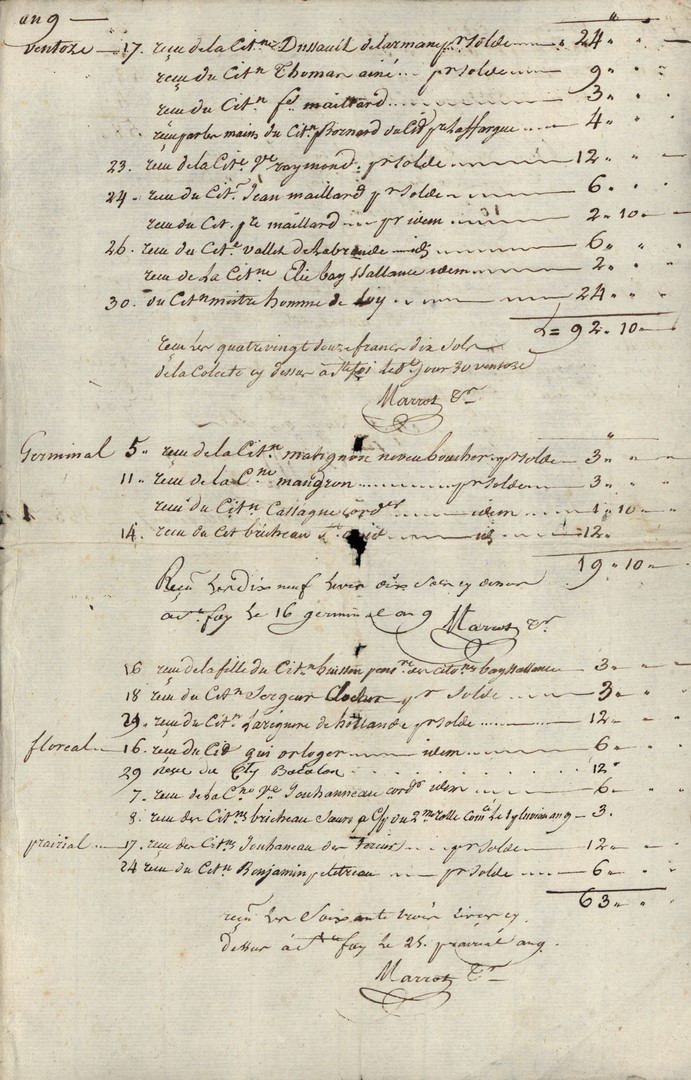 an 9
ventoze 17. recu de la Cit.ne Dussault delarmane pr solde 24 " "
reçu du Cit.n Thomas ainé pr solde 9 " "
reçu du Cit.n maillard 3 " "
reçu par les mains du Cit.n Bernard pr Laffargue 4 " "
23. recu de la Cit.e v.ve raymond pr solde 12 " "
24. recu du Cit. Jean maillard pr solde 6 " "
recu du Cit. p.re maillard pr idem 2 " 10 "
26. recu du Cit. vallet de Labrande id 6 " "
recu de La Cit.ne Elie bay Sallance idem 2 " "
30. du Cit.n homme de Loy 24 " "
L= 92 " 10 "
recu Les quatrevingt douze francs dix sols
de la Colecte cy dessus à S.te foi le d.t Jour 30 ventoze
Marrot Tr.
Germinal 5 " recu de la Cit.n matignon boucher pr solde 3 " "
11 " recu de la C.ne maugron pr solde 3 " "
recu du Cit.n Castagne cord.er idem 1 " 10 "
14. recu du Cit bricheau id 12 "
19 " 10 "
Reçu Les dix neuf Livres dix Sols cy dessus
à S.te foy Le 16 germinal an 9 Marrot Tr.
16 recu de la fille du Cit.n buisson des citones bay Sallance 3 " "
18 recu du Cit.n Sergeur pr solde 3 " "
29. recu du Cit.n Larignere de hollande pr solde 12 " "
floreal 16. reçu du Cit gui orloger idem 6 " "
29 Reçu du City Bacalon 12 "
7. recu de la C.ne v.ve Jouhanneau cord.r idem 6 " "
8. recu des Cit.nes bricheau Sœurs du 2.me rolle 3.
prairial 17. recu des Cit.ns Jouhaneau pr solde 12 " "
24 recu du Cit.n Benjamin petitreau pr solde 6 " "
63 " " "
reçu Les Soixante trois Livres cy
dessus à S.te foy Le 25. prairial an 9.
Marrot Tr.